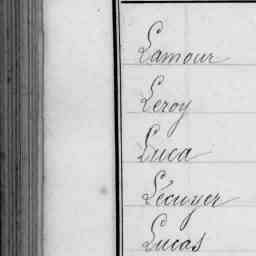 Lamour
Leroy
Luca
Lécuyer
Lucas